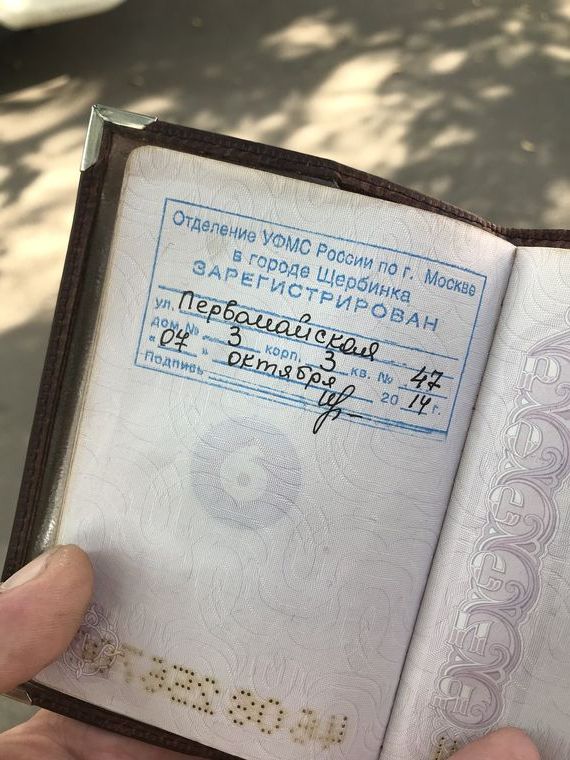 Отделение УФМС России по г. Москве
в городе Щербинка
ЗАРЕГИСТРИРОВАН
ул. Первомайская
дом № 3 корп. 3 кв. № 47
"07" октября 2014 г.
Подпись
6